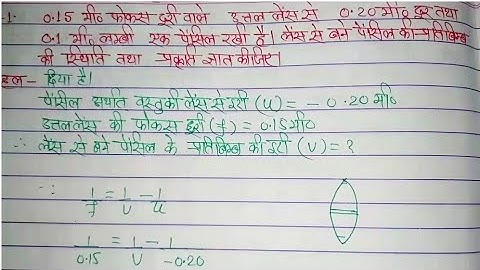 1. 0.15 मी० फोकस दूरी वाले उत्तल लेंस से 0.20 मी० दूर तथा
0.1 मी० लम्बी एक पेंसिल रखी है। लेंस से बने पेंसिल के प्रतिबिम्ब
की स्थिति तथा प्रकृति ज्ञात कीजिए।
हल- दिया है।
पेंसिल अर्थात वस्तु की लेंस से दूरी (u) = - 0.20 मी०
उत्तल लेंस की फोकस दूरी (f) = 0.15 मी०
∴ लेंस से बने पेंसिल के प्रतिबिम्ब की दूरी (v) = ?
∵ 1/f = 1/v - 1/u
1/0.15 = 1/v - 1/-0.20